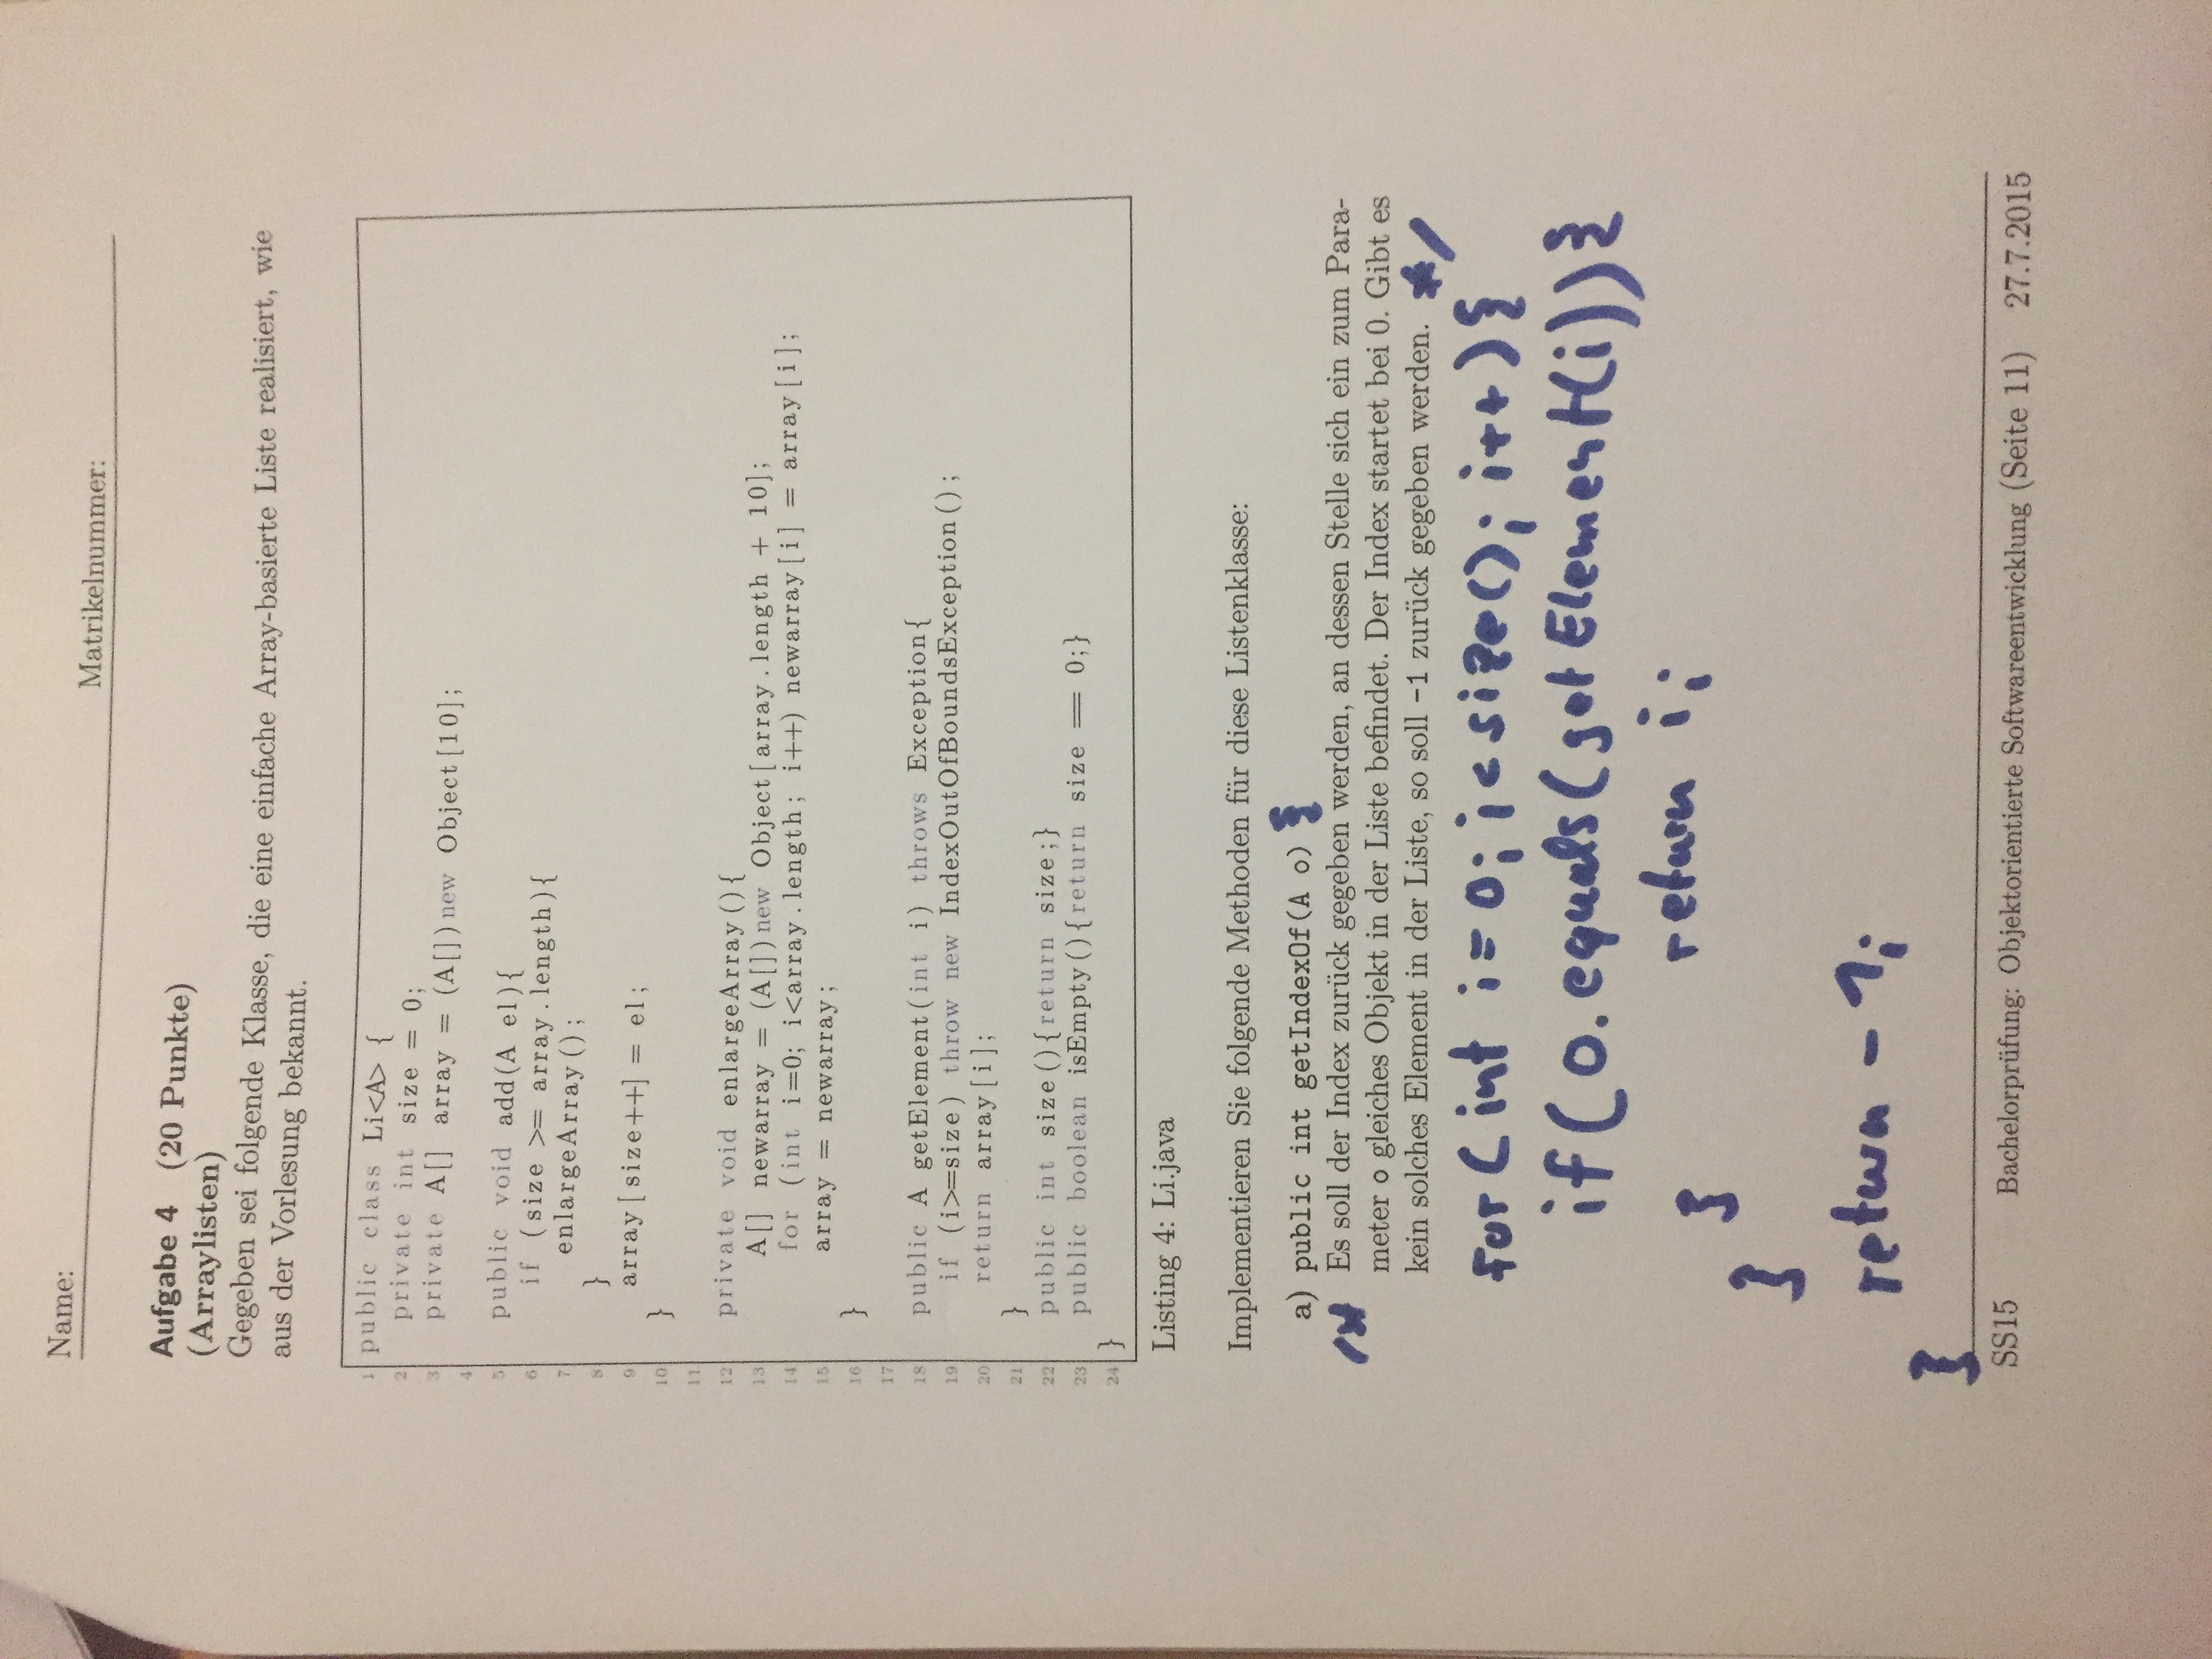 Name: Matrikelnummer:
Aufgabe 4 (20 Punkte)
(Arraylisten)
Gegeben sei folgende Klasse, die eine einfache Array-basierte Liste realisiert, wie
aus der Vorlesung bekannt.
1 public class Li<A> {
2 private int size = 0;
3 private A[] array = (A[])new Object[10];
4
5 public void add(A el){
6 if (size >= array.length){
7 enlargeArray();
8 }
9 array[size++] = el;
10 }
11
12 private void enlargeArray(){
13 A[] newarray = (A[])new Object[array.length + 10];
14 for (int i=0; i<array.length; i++) newarray[i] = array[i];
15 array = newarray;
16 }
17
18 public A getElement(int i) throws Exception{
19 if (i>=size) throw new IndexOutOfBoundsException();
20 return array[i];
21 }
22 public int size(){return size;}
23 public boolean isEmpty(){return size == 0;}
24 }
Listing 4: Li.java
Implementieren Sie folgende Methoden für diese Listenklasse:
a) public int getIndexOf(A o) {
/* Es soll der Index zurück gegeben werden, an dessen Stelle sich ein zum Para-
meter o gleiches Objekt in der Liste befindet. Der Index startet bei 0. Gibt es
kein solches Element in der Liste, so soll -1 zurück gegeben werden. */
for(int i=0; i<size(); i++){
if(o.equals(getElement(i))){
return i;
}
}
return -1;
}
SS15 Bachelorprüfung: Objektorientierte Softwareentwicklung (Seite 11) 27.7.2015